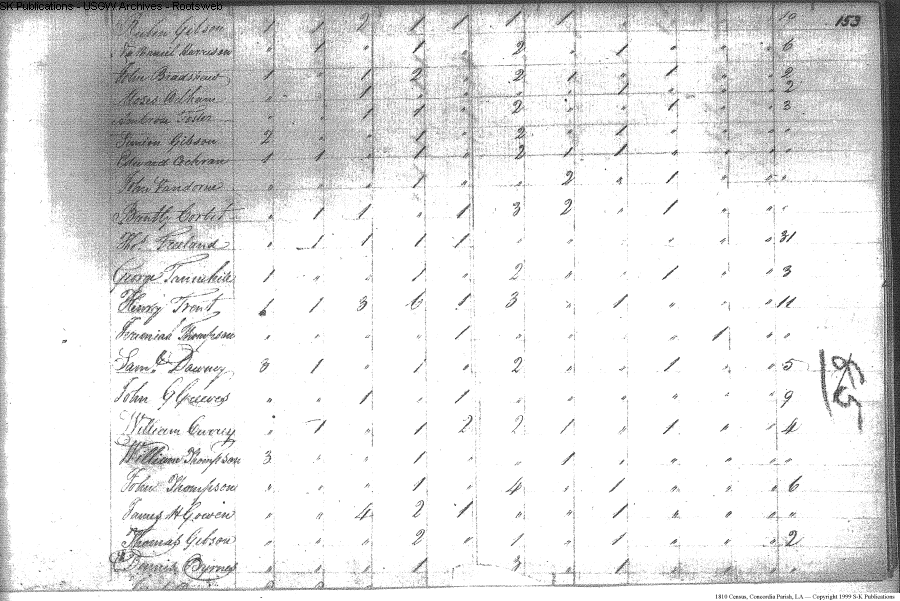 SK Publications - USGW Archives - Rootsweb
153
Rubin Gibson 1 1 2 1 1 1 1 19
Nathaniel Harrison " 1 " 1 " 2 " 1 " " " 6
John Bradshaw 1 " 1 2 " 2 1 " 1 " " 2
Moses " " 1 " " " " 1 " " " 2
Foster " " 1 1 " 2 " " 1 " " 3
Simion Gibson 2 " " 1 " 2 " 1 " " " "
Edward Cochran 1 1 " 1 " 2 1 1 " " " "
John Vandorne " " " 1 " " 2 " 1 " " "
Corbit " 1 1 " 1 3 2 " 1 " " "
Thos Freeland " 1 1 1 1 " " " " " " 31
George Tannehill 1 " " 1 " 2 " " 1 " " 3
Henry Trent 1 1 3 6 1 3 " 1 " " " 11
Jeremiah Thompson " " " " 1 " " " " 1 " "
Saml Downey 3 1 " 1 " 2 " " 1 " " 5
John G " " 1 " 1 " " " " " " 9
William " 1 " 1 2 2 1 " 1 " " 4
William Thompson 3 " " 1 " " 1 " " " " "
John Thompson " " " 1 " 4 " 1 " " " 6
James H Gowen " " 4 2 1 " " 1 " " " "
Thomas Gibson " " " 2 " 1 " 1 " " " 2
Dennis Byrnes " " " 1 " 3 " 1 " " "
1810 Census, Concordia Parish, LA — Copyright 1999 S-K Publications